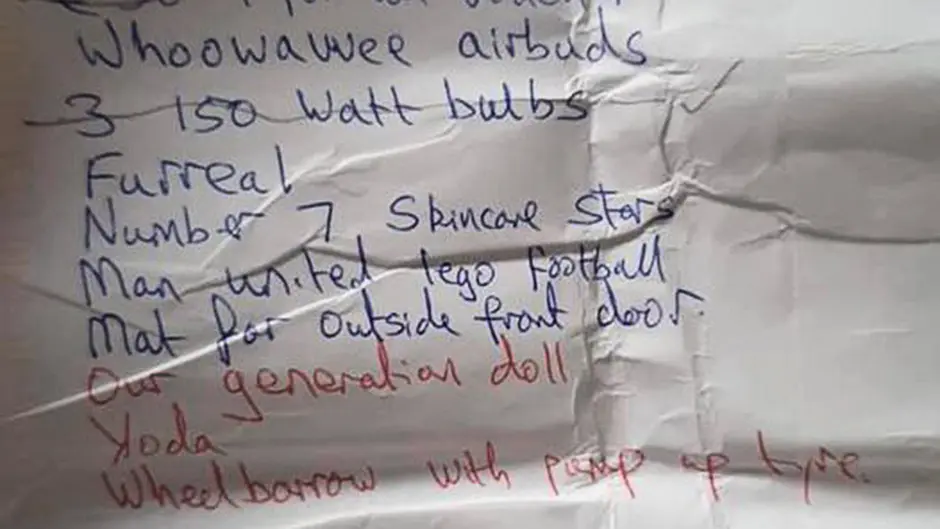 Whoowawwee airbuds
3 150 Watt bulbs
Furreal
Number 7 Skincare Stars
Man united lego football
Mat for outside front door.
Our generation doll
Yoda
Wheelbarrow with pump up tyre.